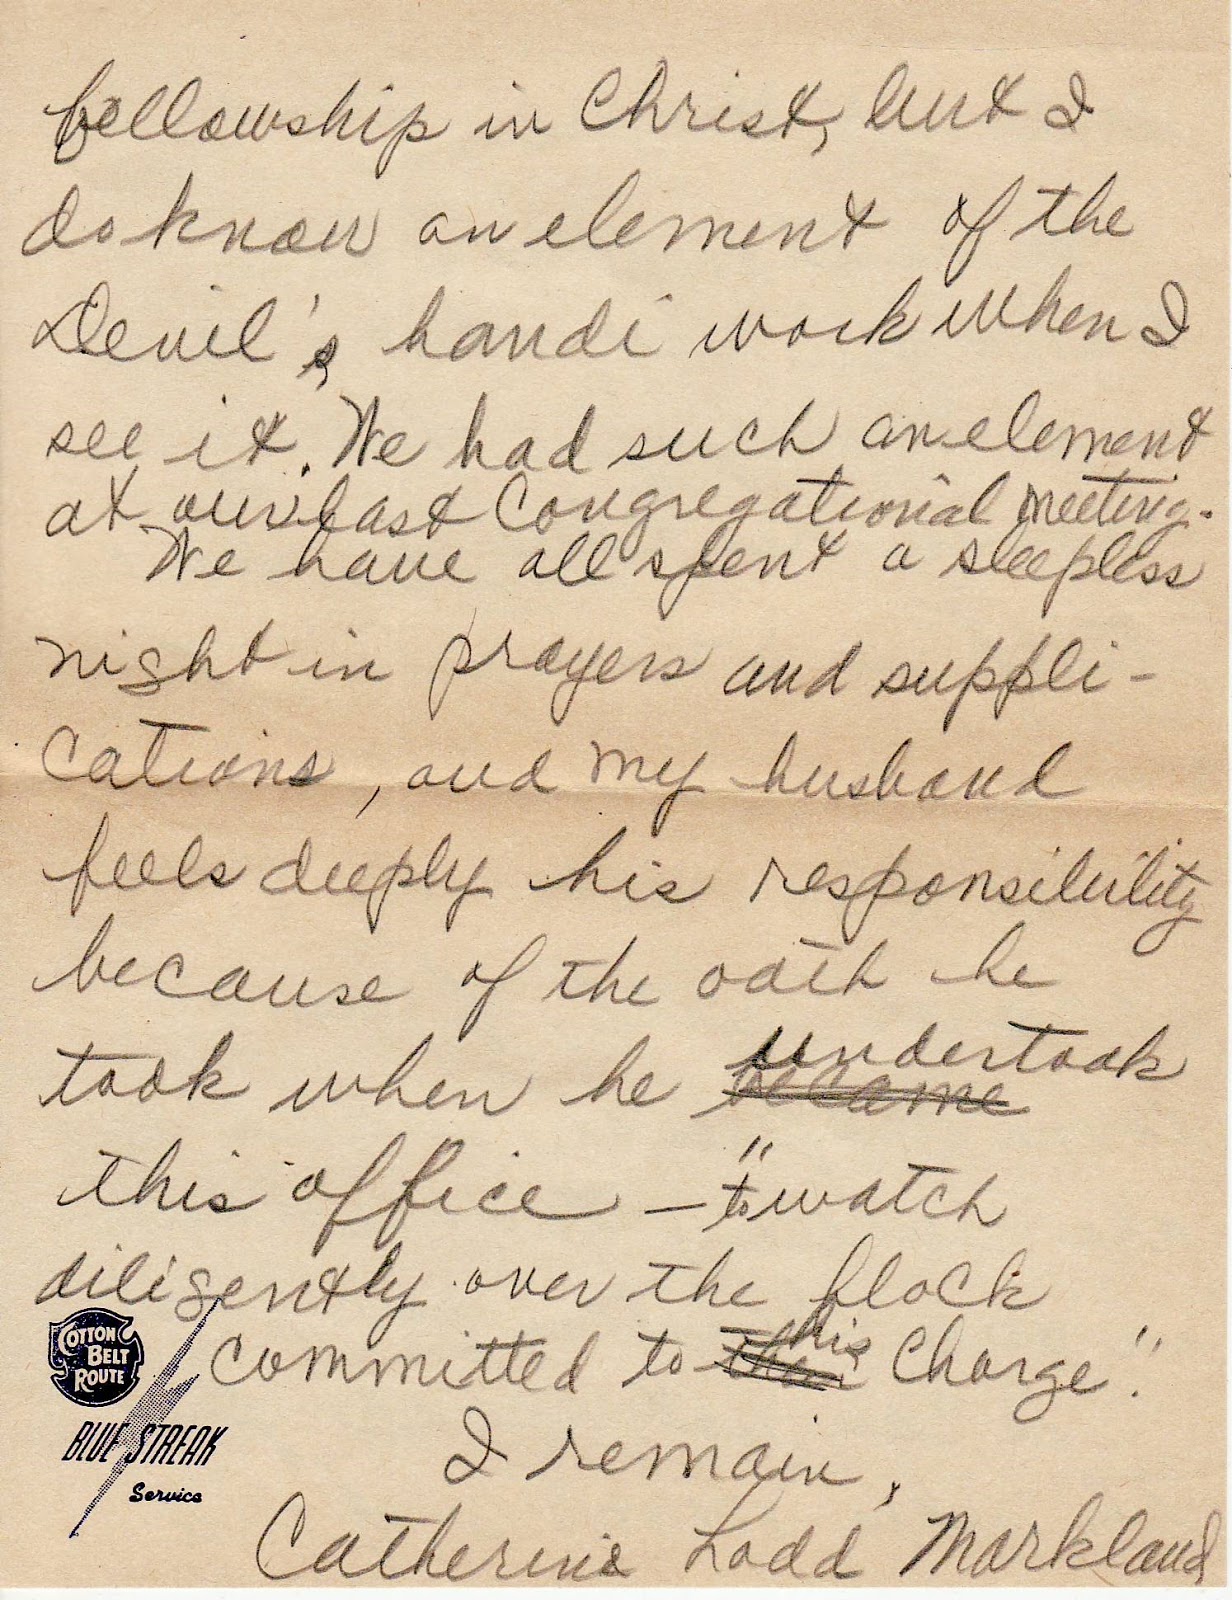 fellowship in Christ, but I
do know an element of the
Devil's handi work when I
see it. We had such an element
at our last Congregational meeting.
We have all spent a sleepless
night in prayers and suppli-
cations, and my husband
feels deeply his responsibility
because of the oath he
took when he became undertook
this office — "to watch
diligently over the flock
committed to his charge".
I remain,
Catherine Ladd Markland
COTTON
BELT
ROUTE
BLUE STREAK
Service